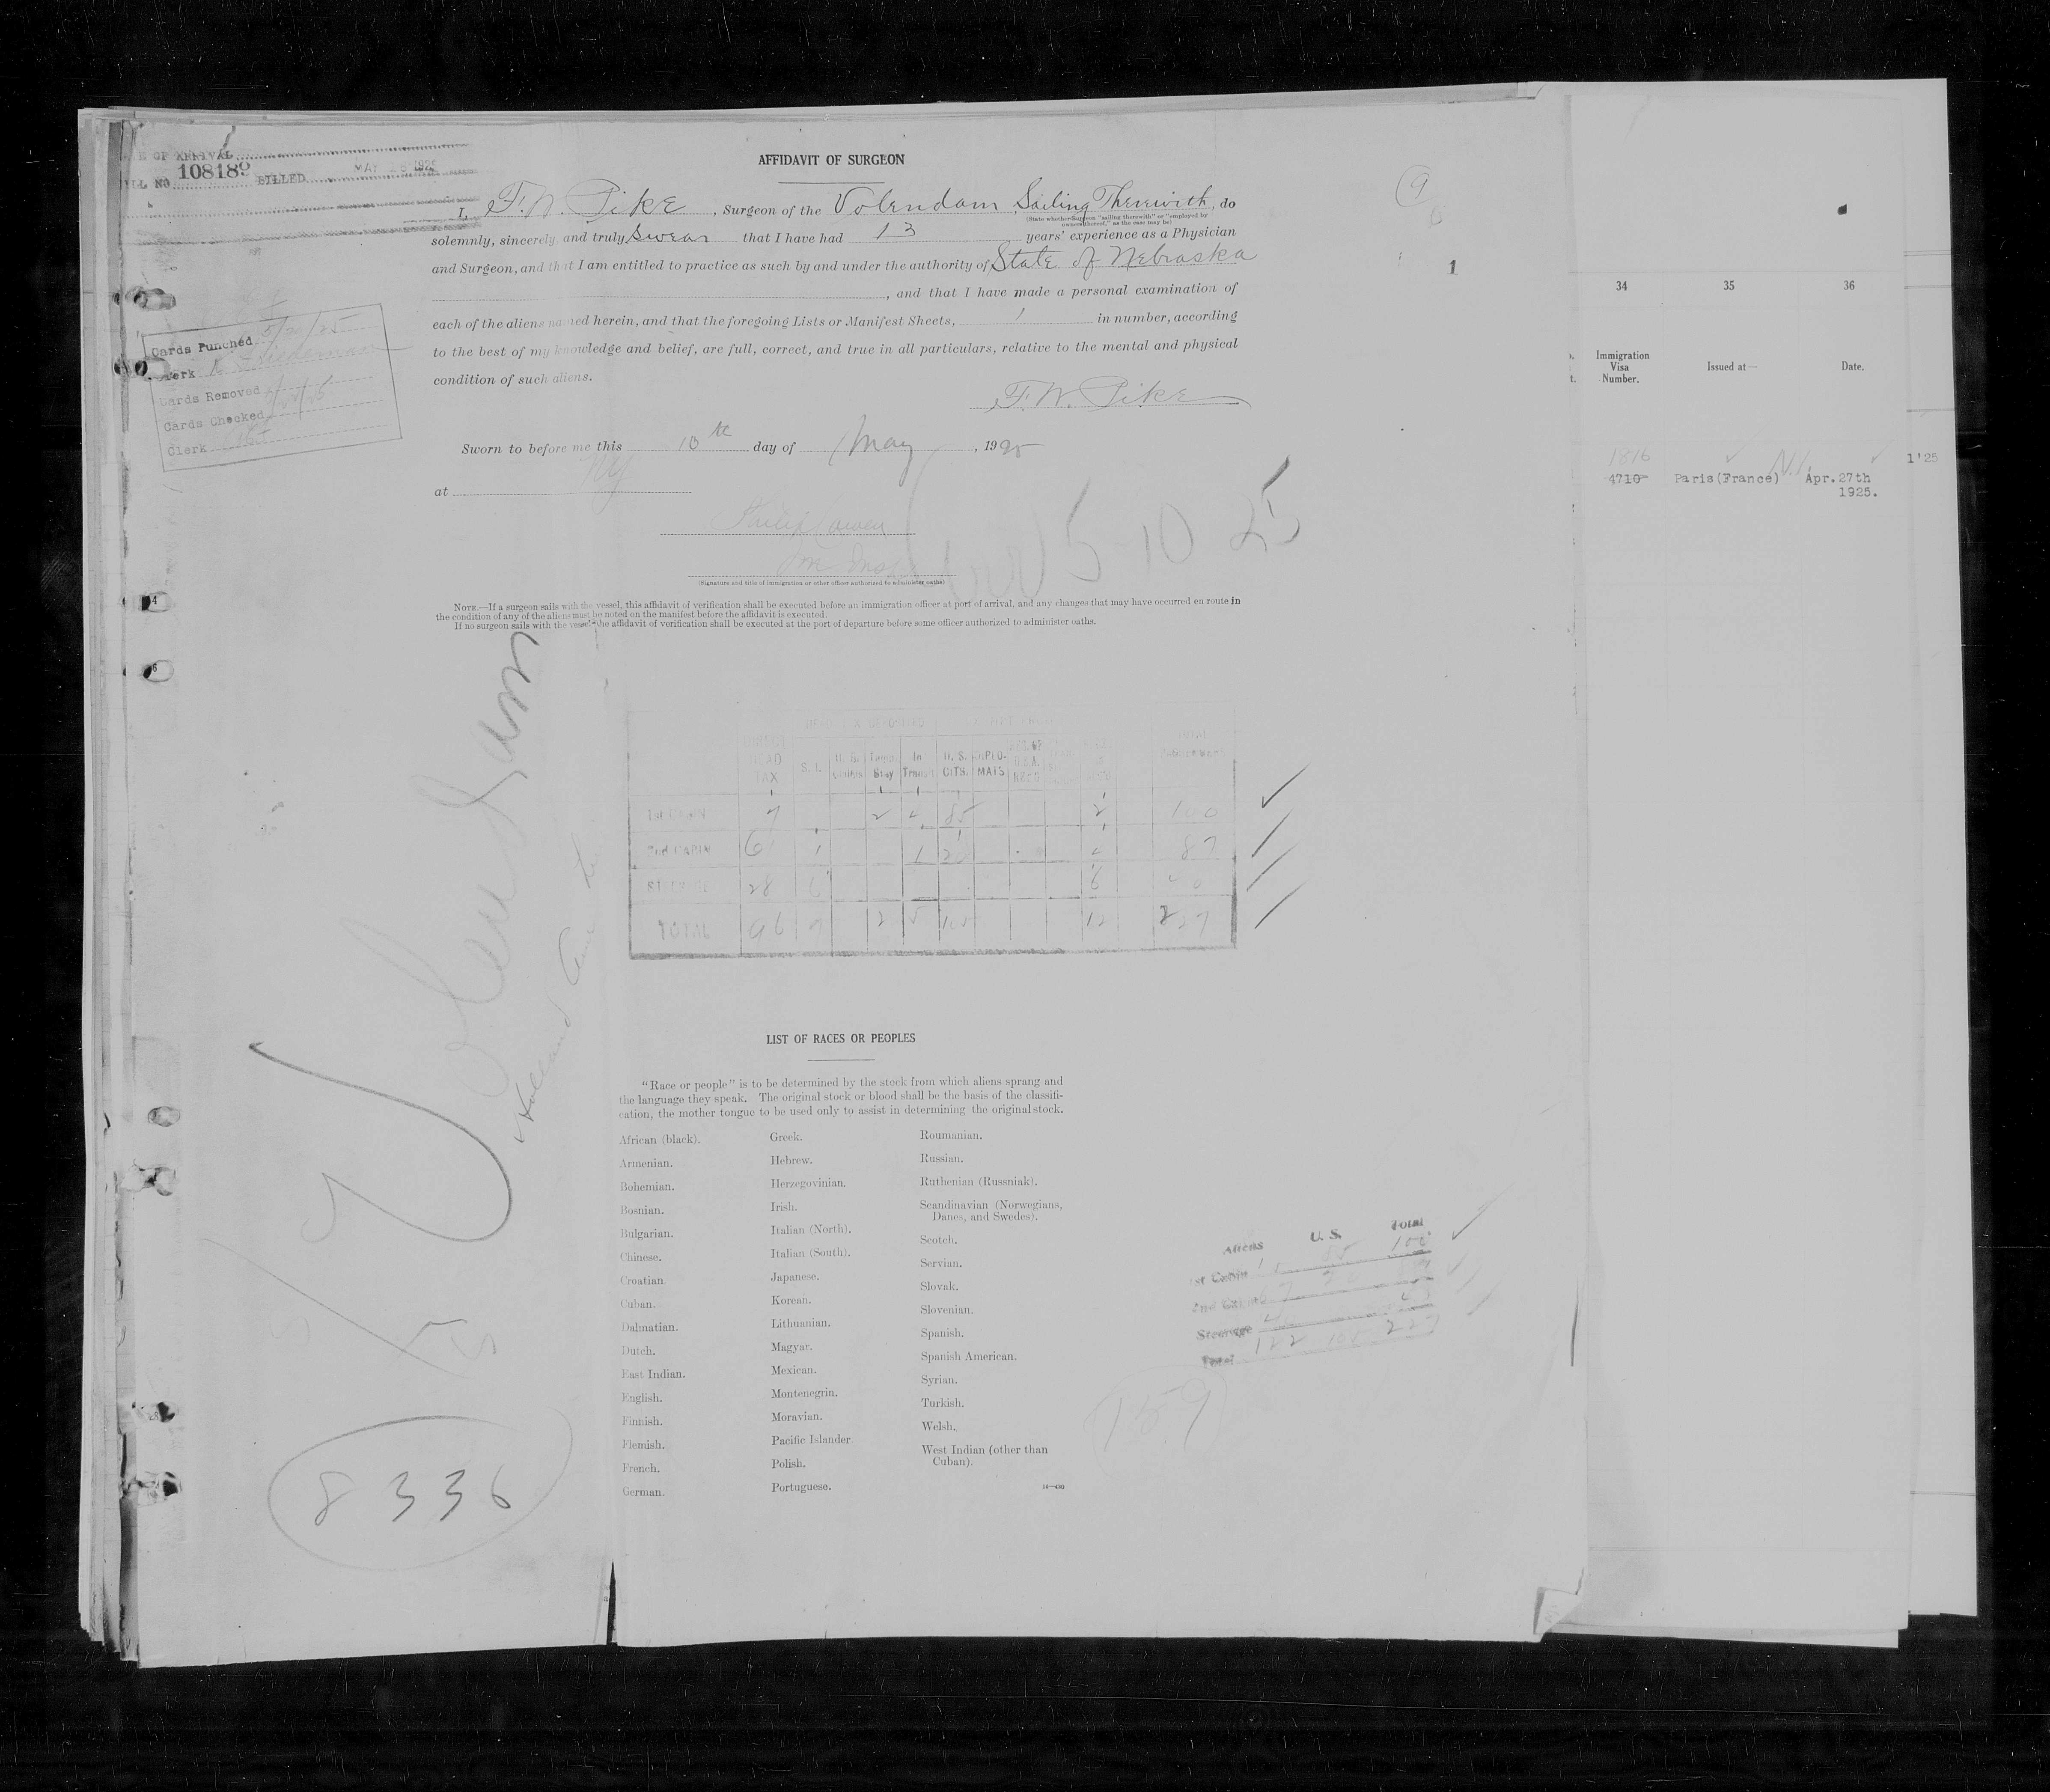 OF ARRIVAL
LL NO. 108189 BILLED MAY 1925
AFFIDAVIT OF SURGEON
I, F. W. Pike, Surgeon of the Volendam, Sailing Therewith, do
(State whether Surgeon "sailing therewith" or "employed by
owners thereof," as the case may be)
solemnly, sincerely, and truly swear that I have had 13 years' experience as a Physician
and Surgeon, and that I am entitled to practice as such by and under the authority of State of Nebraska
, and that I have made a personal examination of
each of the aliens named herein, and that the foregoing Lists or Manifest Sheets, 1 in number, according
to the best of my knowledge and belief, are full, correct, and true in all particulars, relative to the mental and physical
condition of such aliens.
F. W. Pike
Sworn to before me this 10th day of May, 1925
at NY
5-10 25
(Signature and title of immigration or other officer authorized to administer oaths)
NOTE.—If a surgeon sails with the vessel, this affidavit of verification shall be executed before an immigration officer at port of arrival, and any changes that may have occurred en route in
the condition of any of the aliens must be noted on the manifest before the affidavit is executed.
If no surgeon sails with the vessel the affidavit of verification shall be executed at the port of departure before some officer authorized to administer oaths.
Cards Punched 5/20/25
Clerk
Cards Removed
Cards Checked
Clerk
9
1
34 35 36
Immigration
Visa
Number.
Issued at—
Date.
1816
4710 Paris(France) N.Y. Apr.27th
1925.
1'25
4
6
HEAD
TAX
S. I.
Stay
In
Trans
U. S.
CITS.
DIPLO-
MATS
U.S.A.
1st CABIN 7 2 4 85 2 100
2nd CABIN 1 1 20 87
STEERAGE 28 6 6
TOTAL 96 7 2 5 105 12 227
Volendam
Holland
8336
LIST OF RACES OR PEOPLES
"Race or people" is to be determined by the stock from which aliens sprang and
the language they speak. The original stock or blood shall be the basis of the classifi-
cation, the mother tongue to be used only to assist in determining the original stock.
African (black).
Armenian.
Bohemian.
Bosnian.
Bulgarian.
Chinese.
Croatian
Cuban.
Dalmatian.
Dutch.
East Indian.
English.
Finnish.
Flemish.
French.
German.
Greek.
Hebrew.
Herzegovinian.
Irish.
Italian (North).
Italian (South).
Japanese.
Korean.
Lithuanian.
Magyar.
Mexican.
Montenegrin.
Moravian.
Pacific Islander
Polish.
Portuguese.
Roumanian.
Russian.
Ruthenian (Russniak).
Scandinavian (Norwegians,
Danes, and Swedes).
Scotch.
Servian.
Slovak.
Slovenian.
Spanish.
Spanish American.
Syrian.
Turkish.
Welsh.
West Indian (other than
Cuban).
14—430
Aliens U. S. Total
1st Cabin 85 100
2nd Cabin 67 20 87
Steerage
Total 122 105 227
159